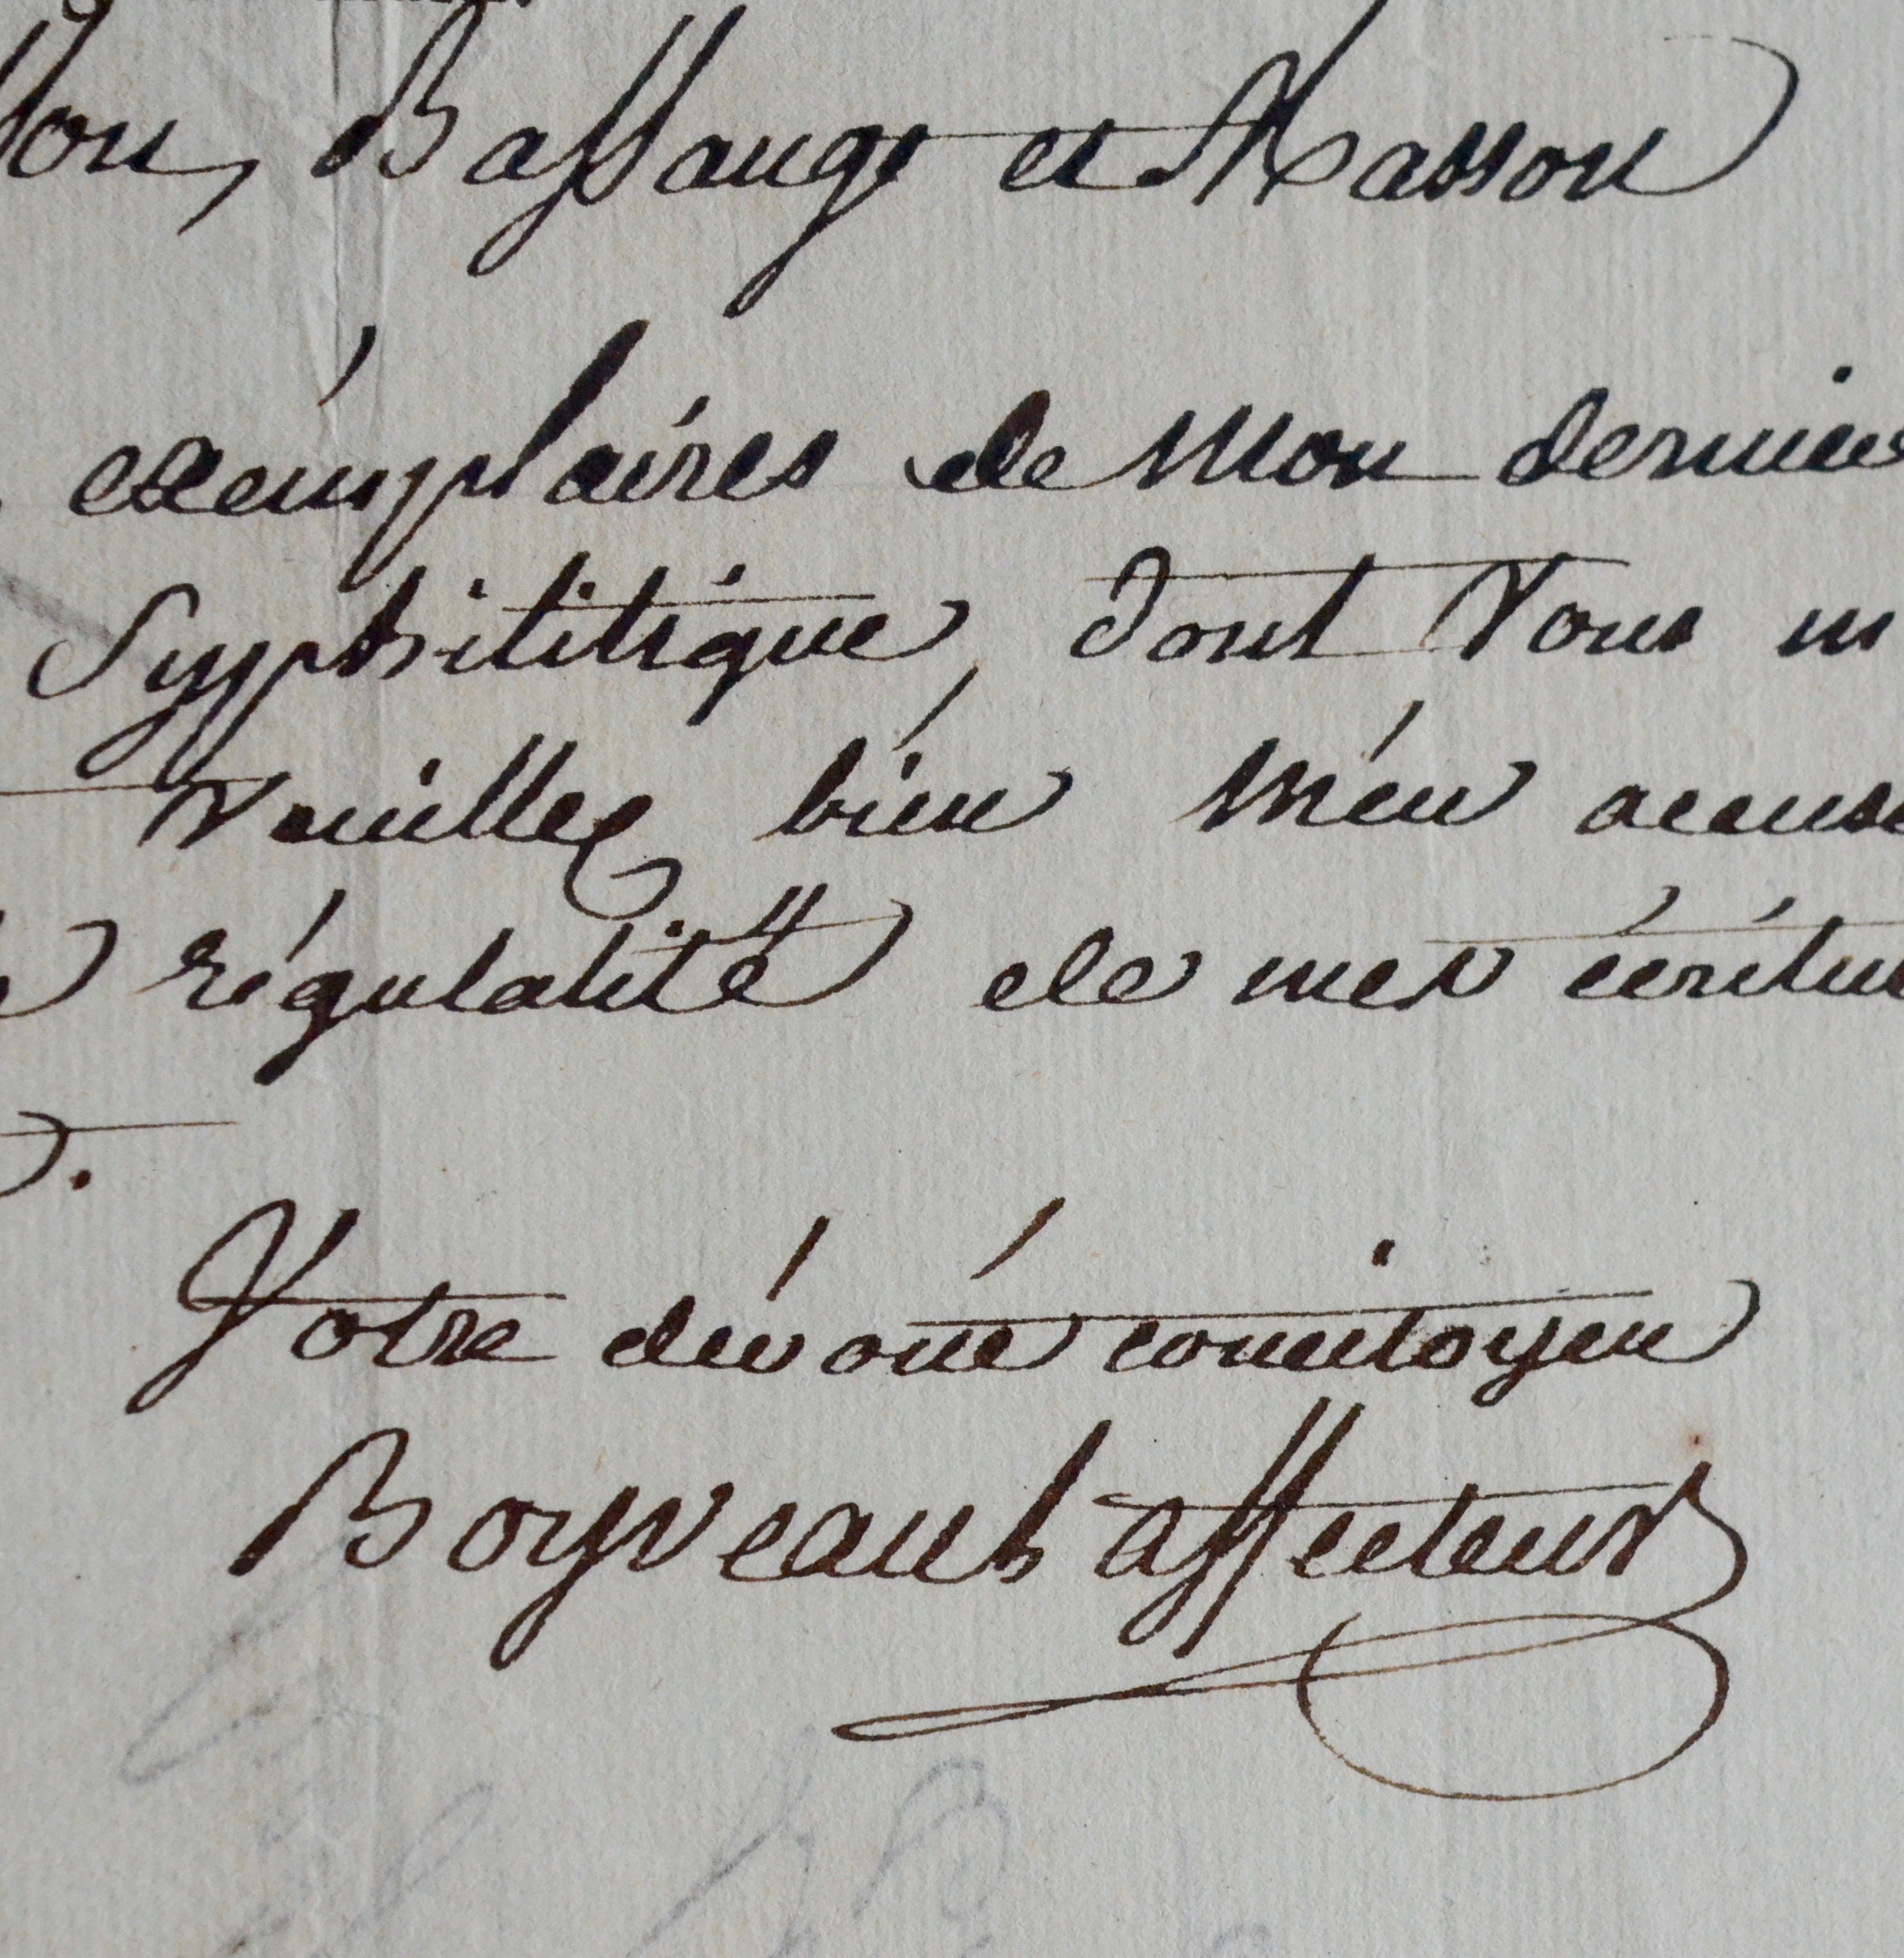 Bassange et Masson
exémplaires de Mon dernier
Syphilitique, dont Vous m
Veuillez bien M'en accuse
régularité de mes écritu
Votre dévoué concitoyen
Boyveau Laffecteur